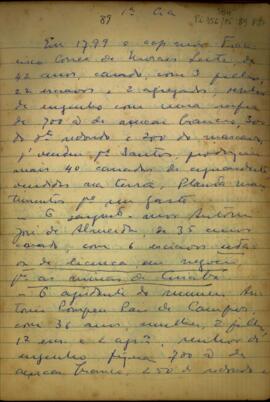 1ª Cia
89
Em 1799 o capitão Fran
cisco Correa de Moraes Leite, de
42 anos, casado, com 3 filhos,
22 escravos e 2 agregados, senhor
de engenho com uma safra
de 700 @ de açucar branco, 300
de dº redondo e 200 de mascavo,
já vendeu pª Santos, produziu
mais 40 canadas de aguardente
vendidas na terra. Planta man
timentos pª seu gasto.
— O sargento-mor Antonio
José de Almeida, de 35 anos
casado, com 6 escravos
de licença em negocio
pª as minas de Cuiabá
— O ajudante de
Antonio Pompeu Paes de Campos,
com 36 anos, mulher, 2 filhos
senhor de
engenho, 700 @ de
açucar branco, 250 de redondo e